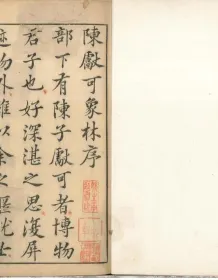 陳獻可象林序
部下有陳子獻可者博物
君子也好深湛之思復屏
迹物外雖以余之